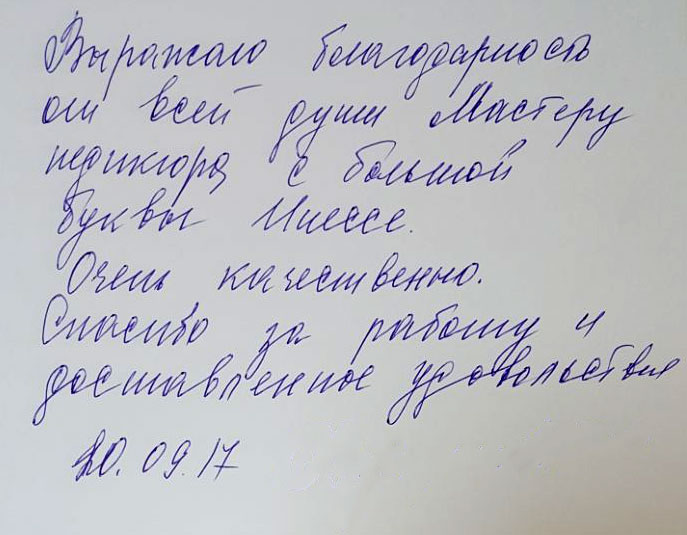 Выражаю благодарность
от всей души Мастеру
педикюра с большой
буквы Инессе.
Очень качественно.
Спасибо за работу и
доставленное удовольствие
20.09.17